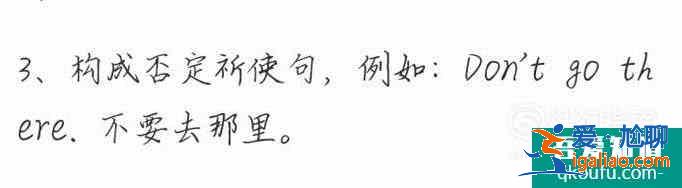 3、构成否定祈使句，例如：Don't go th
ere. 不要去那里。
爱·尬聊
igaliao.com
qkoufu.com-